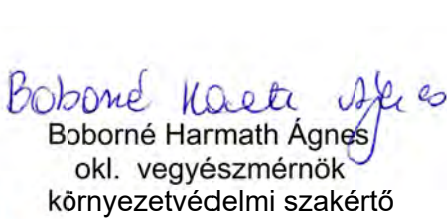 Boborné Harmath Ágnes
Boborné Harmath Ágnes
okl. vegyészmérnök
környezetvédelmi szakértő